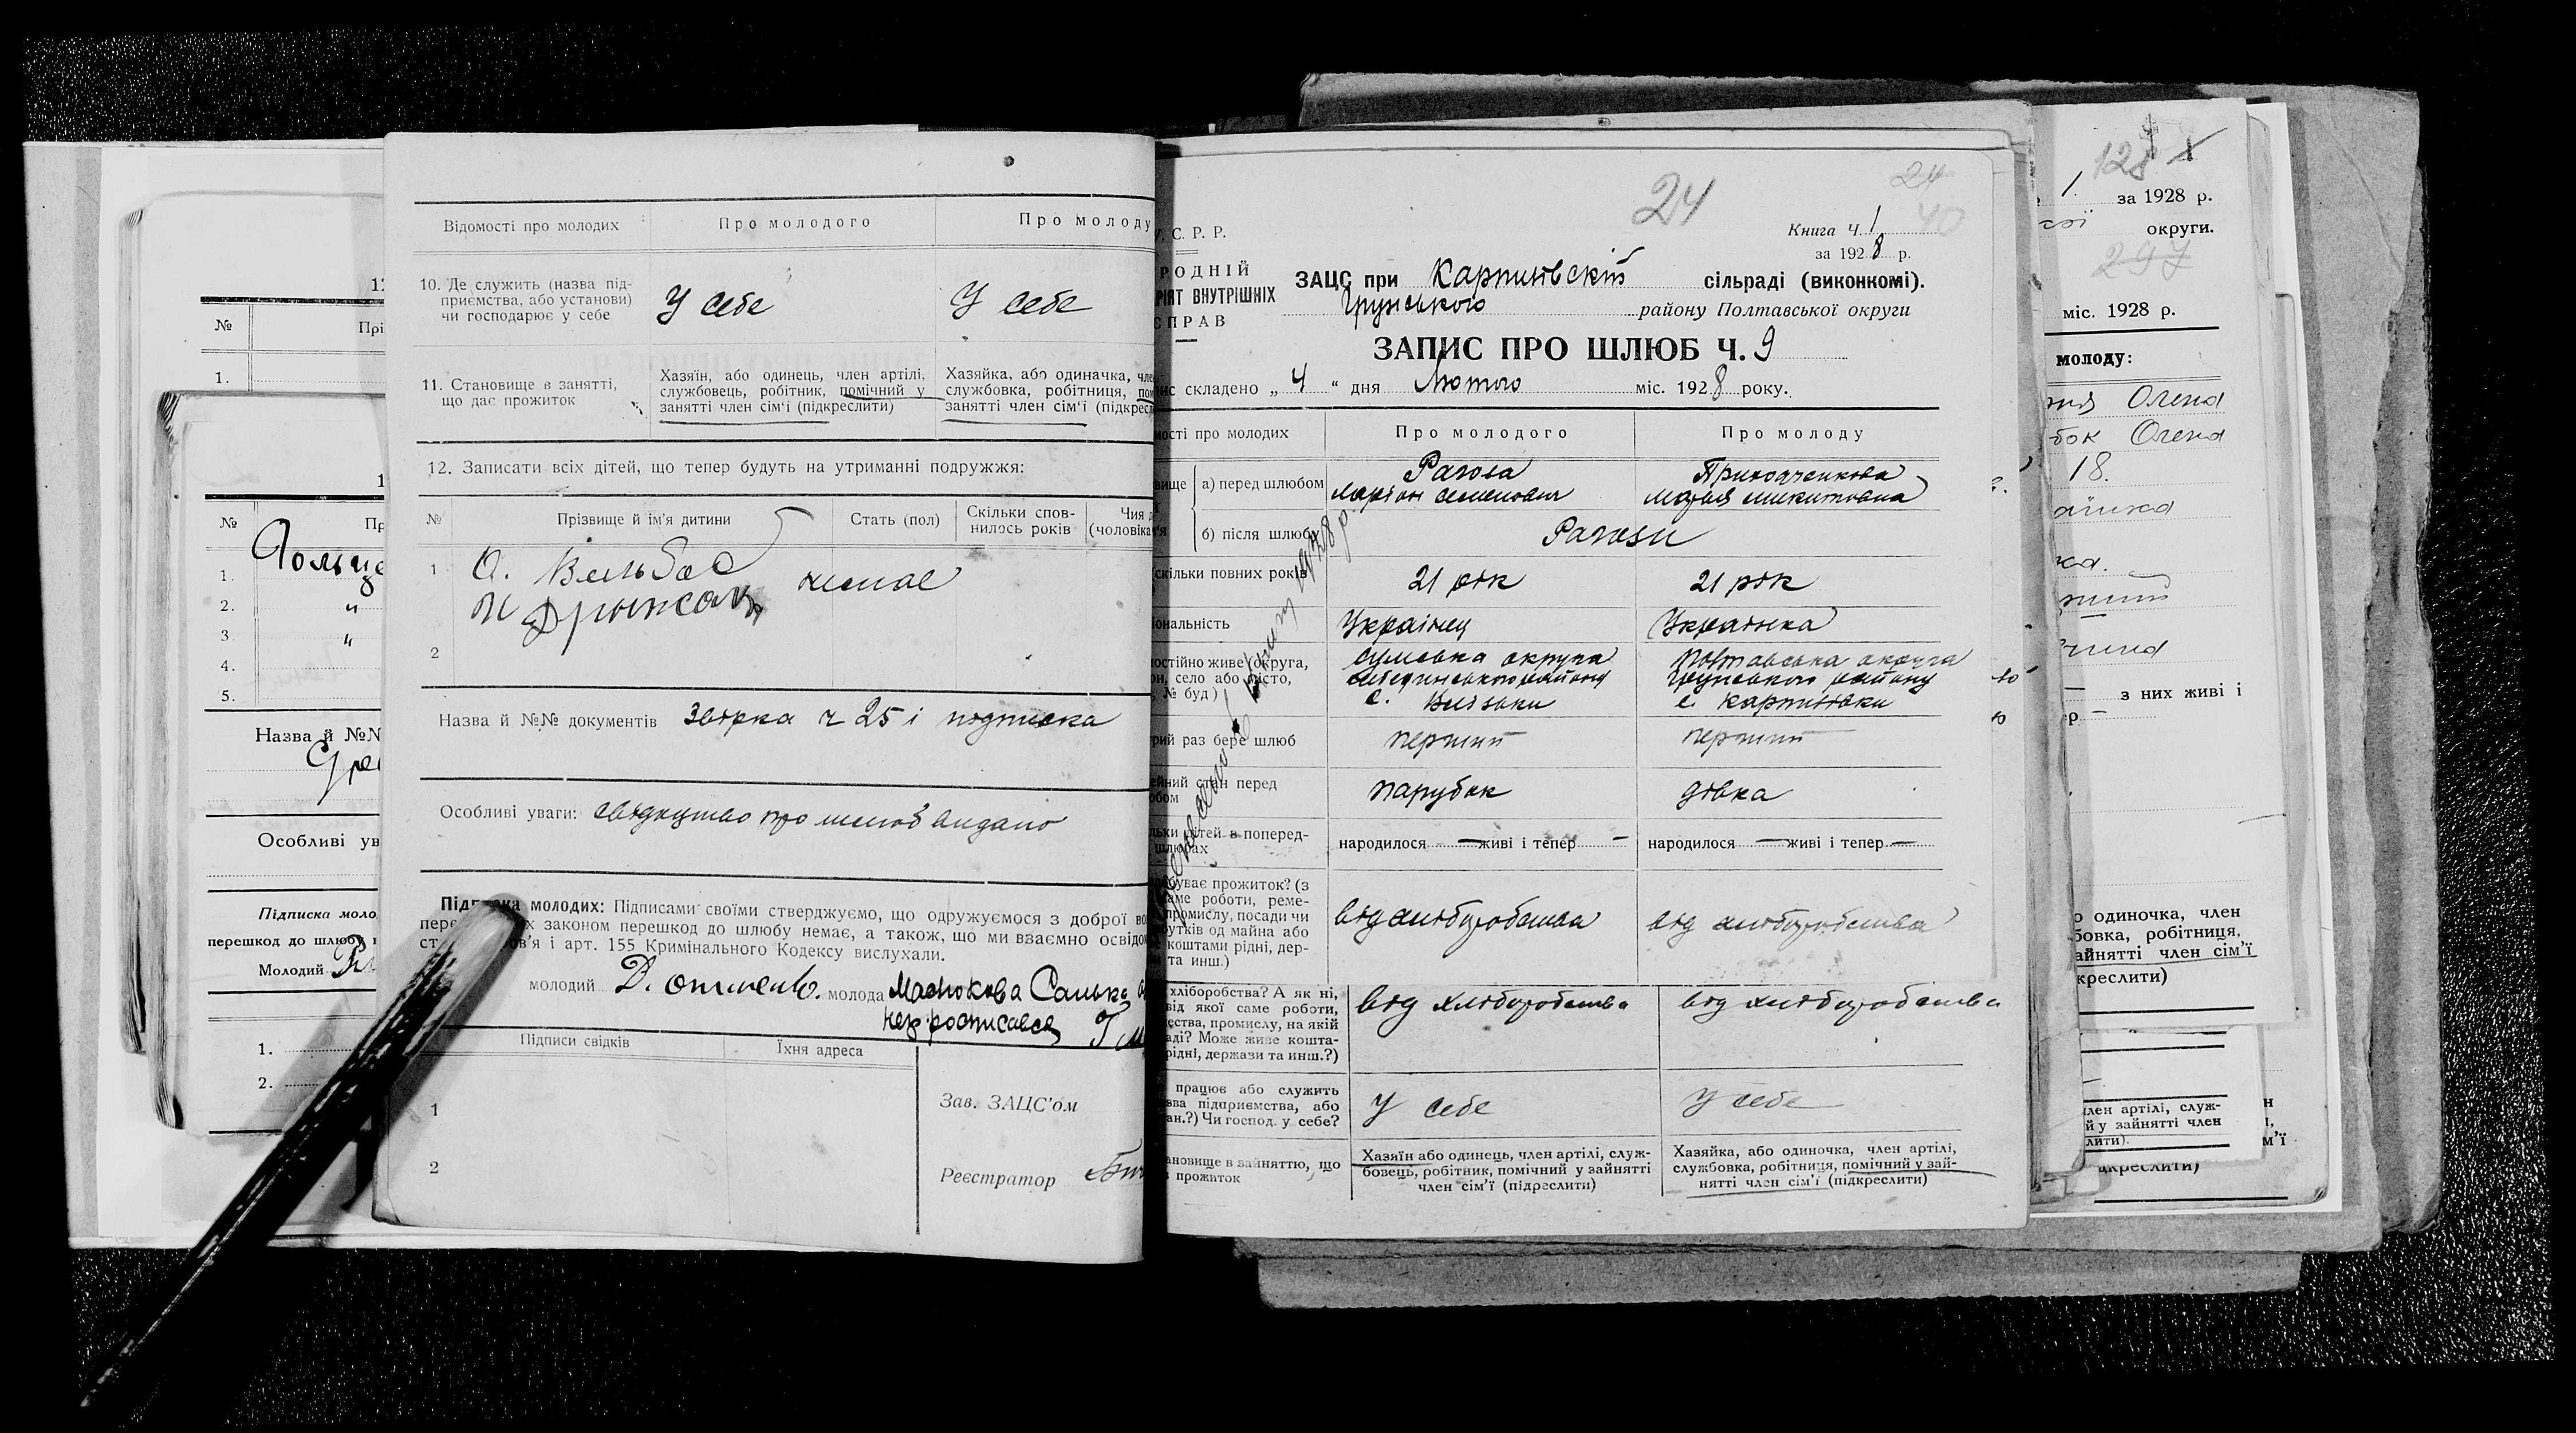 Відомості про молодих
Про молодого
Про молоду
10. Де служить (назва під-
приємства, або установи)
чи господарює у себе
У себе
У себе
11. Становище в занятті,
що дає прожиток
Хазяїн, або одинець, член артілі,
службовець, робітник, помічний у
занятті член сім'ї (підкреслити)
Хазяйка, або одиначка, чле
службовка, робітниця, пом
занятті член сім'ї (підкресл
12. Записати всіх дітей, що тепер будуть на утриманні подружжя:
№
Прізвище й ім'я дитини
Стать (пол)
Скільки спов-
нилось років
Чия д
(чоловіка
1
немає
2
Назва й №№ документів
Звірка ч 25 і подписка
Особливі уваги: свідоцтво про шлюб видано
Підписка молодих: Підписами своїми стверджуємо, що одружуємося з доброї во
законом перешкод до шлюбу немає, а також, що ми взаємно освідо
в'я і арт. 155 Кримінального Кодексу вислухали.
молодий
молода
Підписи свідків
Їхня адреса
1
2
Зав. ЗАЦС'ом
Реєстратор
12
№
Прі
1.
1
№
Пр
1.
2. "
3 "
4.
5.
Назва й №№
Особливі ув
Підписка моло
перешкод до шлюбу н
Молодий
1.
2.
24
24
40
У. С. Р. Р.
Книга Ч. 1
за 1928 р.
РОДНІЙ
РІЯТ ВНУТРІШНІХ
СПРАВ
ЗАЦС при Карпилівскій сільраді (виконкомі).
Грунського району Полтавської округи
ЗАПИС ПРО ШЛЮБ Ч. 9
ис складено „ 4 “ дня Лютого міс. 1928 року.
мості про молодих
Про молодого
Про молоду
вище
а) перед шлюбом
Рагоза
Маріон Семенович
Приходченкова
Марія Микитовна
б) після шлюбу
Рагози
скільки повних років
21 рік
21 рік
іональність
Українец
Українка
остійно живе (округа,
он, село або місто,
№ буд)
Сумська округа
Лебединського району
с.
Полтавська округа
Грунського району
с. Карпилівки
рий раз бере шлюб
перший
перший
ейний стан перед
юбом
парубок
дівка
льки дітей в поперед-
шлюбах
народилося — живі і тепер —
народилося — живі і тепер —
обуває прожиток? (з
аме роботи, реме-
промислу, посади чи
бутків од майна або
коштами рідні, дер-
та инш.)
від хліборобства
від хліборобства
хліборобства? А як ні,
від якої саме роботи,
ества, промислу, на якій
аді? Може живе кошта-
рідні, держави та инш.?)
від хліборобства
від хліборобства
працює або служить
ва підприємства, або
ан.?) Чи господ. у себе?
У себе
У себе
ановище в зайняттю, що
прожиток
Хазяїн або одинець, член артілі, служ-
бовець, робітник, помічний у зайнятті
член сім'ї (підреслити)
Хазяйка, або одиночка, член артілі,
службовка, робітниця, помічний у зай-
нятті член сім'ї (підкреслити)
128
1. за 1928 р.
округи.
297
міс. 1928 р.
молоду:
Олена
Олена
18.
з них живі і
о одиночка, член
бовка, робітниця,
айнятті член сім'ї
креслити)
член артілі, служ-
й у зайнятті член
лити)